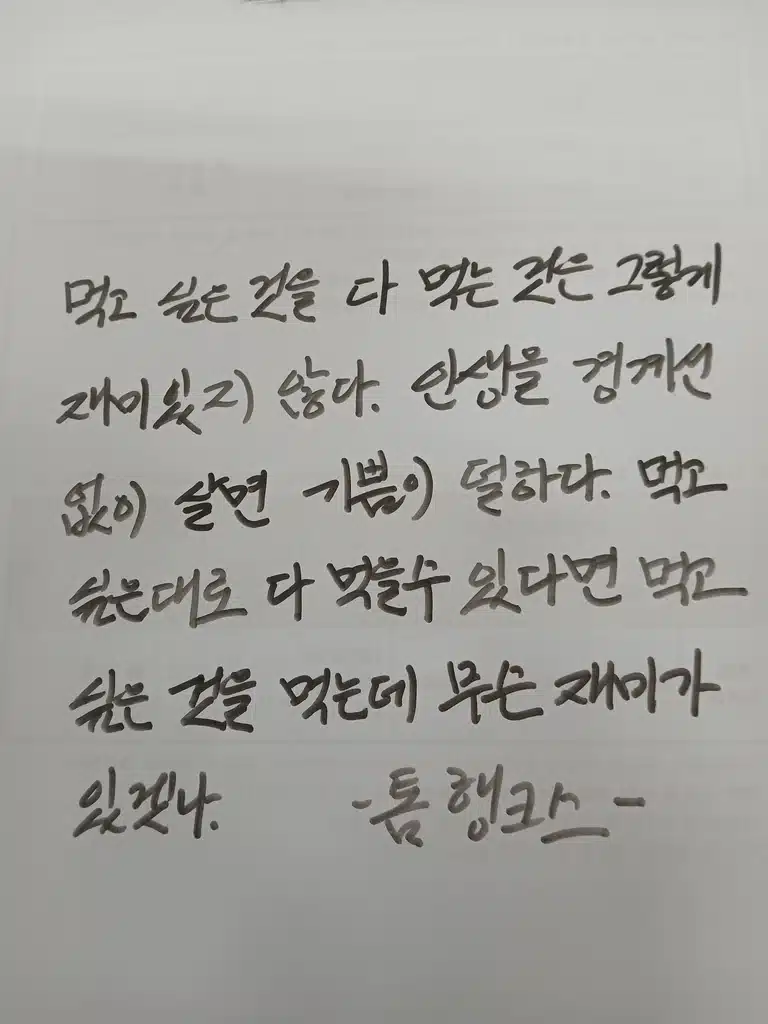 먹고 싶은 것을 다 먹는 것은 그렇게
재미있지 않다. 인생을 경계선
없이 살면 기쁨이 덜하다. 먹고
싶은대로 다 먹을수 있다면 먹고
싶은 것을 먹는데 무슨 재미가
있겠나. -톰 행크스-